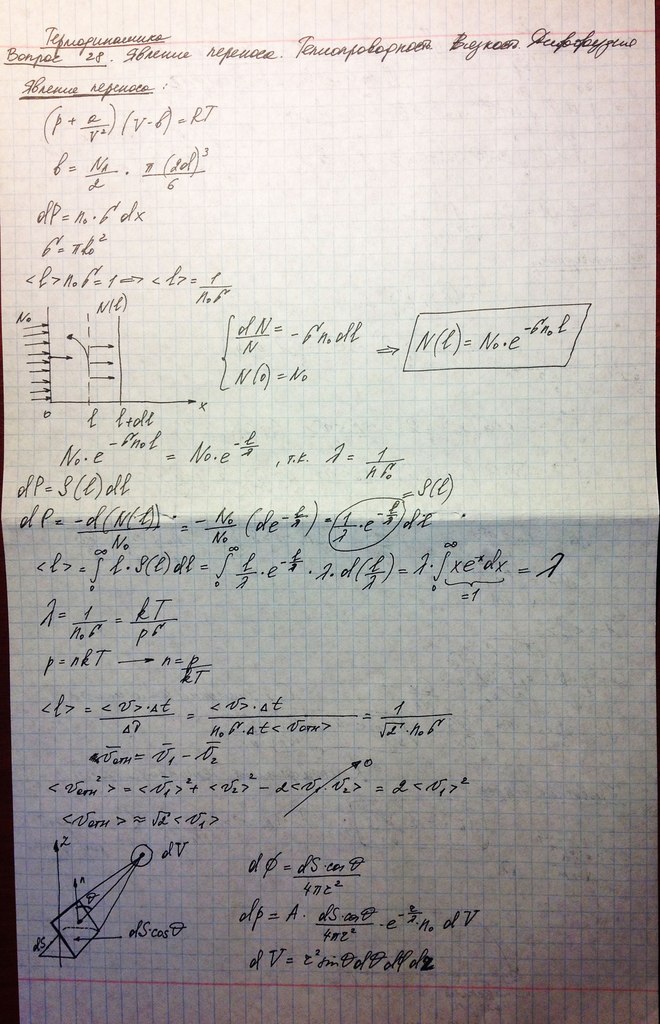 Термодинамика
Вопрос 28. Явление переноса. Теплопроводность. Вязкость. Диффузия
Явление переноса:
(p + a/V²)(V-b) = RT
b = N_A/2 · π(2d)³/6
dP = n₀·σ dx
σ = πb₀²
<l> n₀σ = 1 ⇒ <l> = 1/(n₀σ)
N₀ N(l)
0 l l+dl x
{ dN/N = -σn₀dl
N(0) = N₀
⇒ N(l) = N₀·e^(-σn₀l)
N₀·e^(-σn₀l) = N₀·e^(-l/λ), т.к. λ = 1/(nσ₀)
dP = ρ(l)dl
= ρ(l)
dP = -d(N(l))/N₀ = -N₀/N₀ (de^(-l/λ)) = 1/λ·e^(-l/λ) dl
<l> = ∫₀^∞ l·ρ(l)dl = ∫₀^∞ l/λ·e^(-l/λ)·λ·d(l/λ) = λ·∫₀^∞ xeˣdx = λ
=1
λ = 1/(n₀σ) = kT/(pσ)
p = nkT → n = p/kT
<l> = <v>·Δt/Δν = <v>·Δt/(n₀σ·Δt<v_отн>) = 1/(√2·n₀σ)
v̄_отн = v̄₁ - v̄₂
0
<v_отн²> = <v̄₁>² + <v₂>² - 2<v̄₁·v̄₂> = 2<v₁>²
<v_отн> ≈ √2<v₁>
z dV
n θ
dS dS·cosθ
dφ = dS·cosθ/(4πr²)
dp = A·dS·cosθ/(4πr²)·e^(-r/λ)·n₀ dV
dV = r²sinθdθdφdr